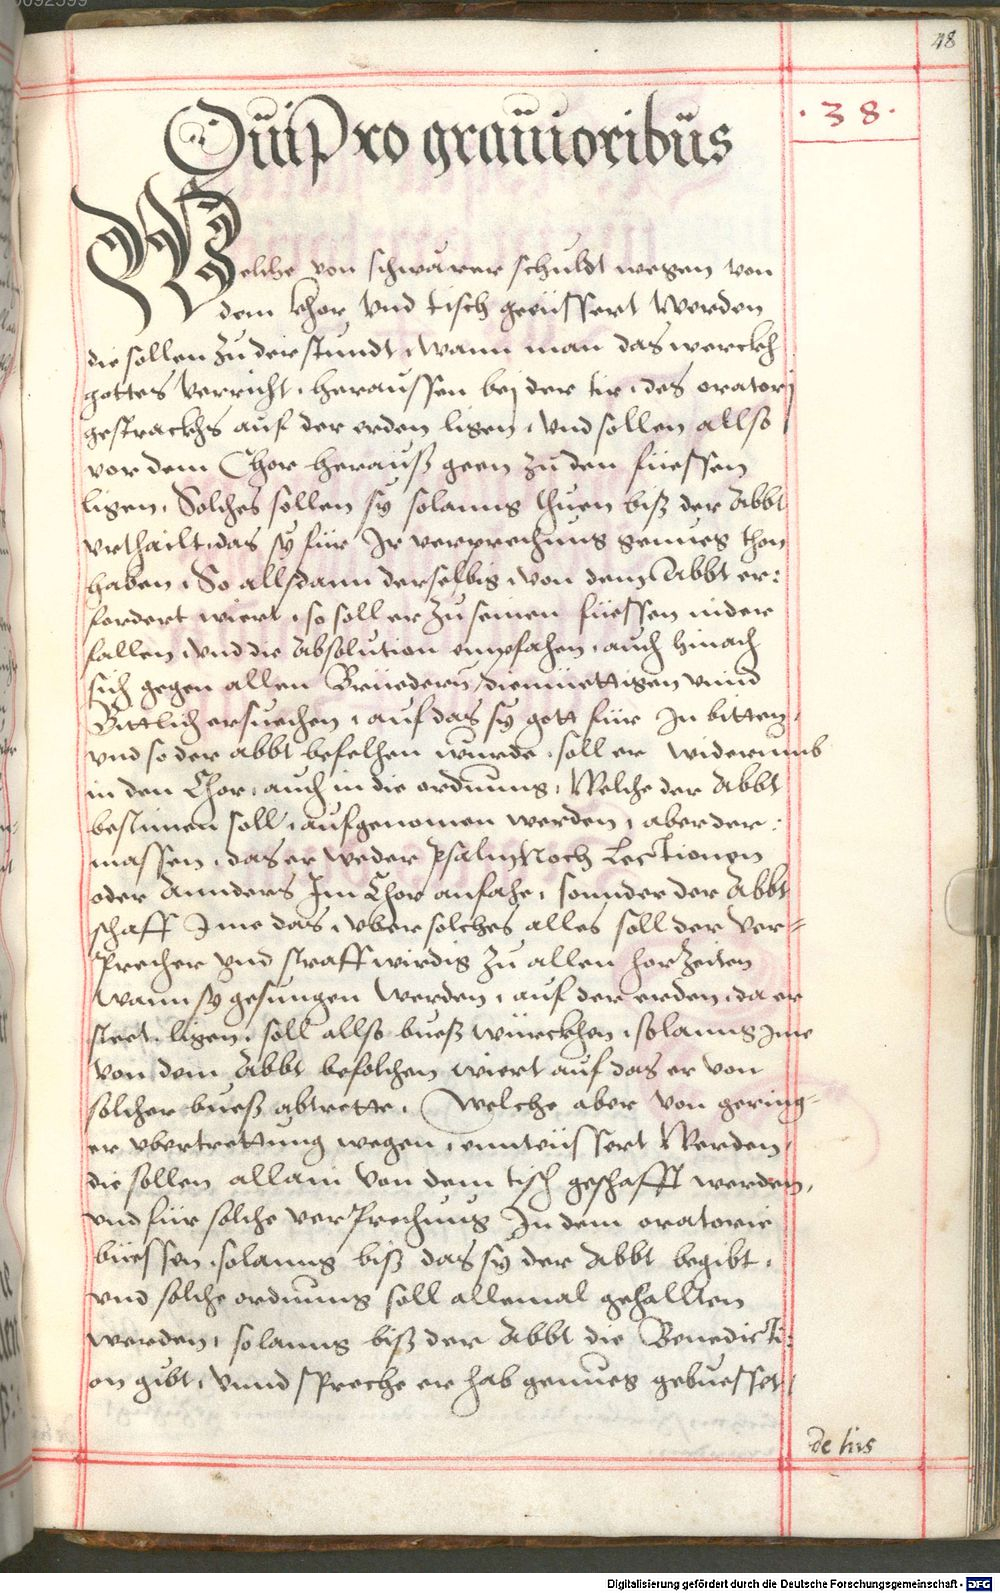 48
. 38 .
Qui Pro grauioribus
Welche von schwärer schuldt wegen von
dem Chor vnd tisch geeüssert werden
die sollen zu der stundt, wann man das werckh
gottes verricht, heraussen bej der tir, des oratorj
gestrackhs auf der erden ligen, vnd sollen allso
vor dem Chor herauß geen zu den füessen
ligen. Solches sollen sy solanng thuen biß der Abbt
vrthailt, das sy für Ir verprechung genueg thon
haben, So allsdann derselbig von dem Abbt er:
fordert wiert, so soll er zu seinen füessen nider
fallen, vnd die Absolution empfahen, auch hinach
sich gegen allen Brüedern diemüettigen vnnd
Bittlich ersuechen, auf das sy gott für In bitten,
vnd so der abbt befelhen wurde, soll er widerumb
in den Chor, auch in die ordnung, Welche der Abbt
bestimen soll, aufgenomen werden, aber der:
massen, das er weder psalm Noch Lectionen
oder Annders Im Chor anfahe, sonnder der Abbt
schaff Ime das, vber solches alles soll der Ver=
precher vnd straffwirdig zu allen horzeiten
wann sy gesungen werden, auf der erden, da er
steet, ligen, soll allso bueß würckhen, solanng Ime
von dem Abbt befolchen wiert auf das er von
solcher bueß abtrette. Welche aber von gering=
er vbertrettung wegen, enteüssert Werden,
die sollen allain von dem tisch geschafft werden,
vnd für solche verprechung In dem oratorie
büessen, solanng biß das sy der Abbt begibt,
vnd solche ordnung soll allemal gehallten
werden, solanng biß der Abbt die Benedicti:
on gibt, vnnd spreche er hab genueg gebuesset,
de his
Digitalisierung gefördert durch die Deutsche Forschungsgemeinschaft - DFG